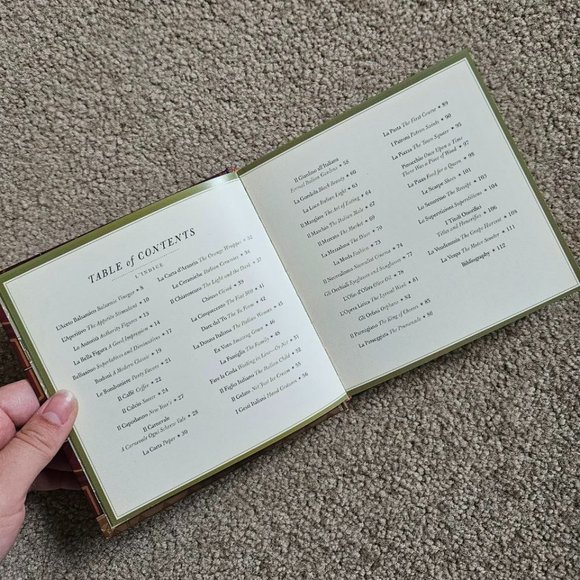 TABLE of CONTENTS
L'INDICE
L'Aceto Balsamico Balsamic Vinegar • 8
L'Aperitivo The Appetite Stimulant • 10
Le Autorità Authority Figures • 13
La Bella Figura A Good Impression • 14
Bellissimo Superlatives and Diminutives • 17
Bodoni A Modern Classic • 19
Le Bomboniere Party Favors • 21
Il Caffè Coffee • 22
Il Calcio Soccer • 24
Il Capodanno New Year's • 27
Il Carnevale
A Carnevale Ogni Scherzo Vale • 28
La Carta Paper • 30
La Carta d'Arancia The Orange Wrapper • 32
La Ceramica Italian Ceramics • 34
Il Chiaroscuro The Light and the Dark • 37
Chiuso Closed • 39
La Cinquecento The Fiat 500 • 41
Dare del Tu The Tu Form • 42
La Donna Italiana The Italian Woman • 45
Ecco Amazing Grace • 46
La Famiglia The Family • 49
Fare la Coda Waiting in Line—Or Not • 51
Il Figlio Italiano The Italian Child • 52
Il Gelato Not Just Ice Cream • 55
I Gesti Italiani Hand Gestures • 56
Il Giardino all'Italiana
Formal Italian Gardens • 58
La Gondola Black Beauty • 60
La Luce Italian Light • 63
Il Mangiare The Art of Eating • 64
Il Maschio The Italian Male • 67
Il Mercato The Market • 69
La Moda Fashion • 73
Il Neorealismo Neorealist Cinema • 74
Gli Occhiali Eyeglasses and Sunglasses • 77
L'Olio d'Oliva Olive Oil • 79
L'Opera Lirica The Lyrical Work • 81
Gli Orfani Orphans • 82
Il Parmigiano The King of Cheeses • 85
La Passeggiata The Promenade • 86
La Pasta The First Course • 89
I Patroni Patron Saints • 90
La Piazza The Town Square • 95
Pinocchio Once Upon a Time
There Was a Piece of Wood • 97
La Pizza Food for a Queen • 98
Le Scarpe Shoes • 101
Lo Scontrino The Receipt • 103
La Superstizione Superstitions • 104
I Titoli Onorifici
Titles and Honorifics • 106
La Vendemmia The Grape Harvest • 108
La Vespa The Motor Scooter • 111
Bibliography • 112